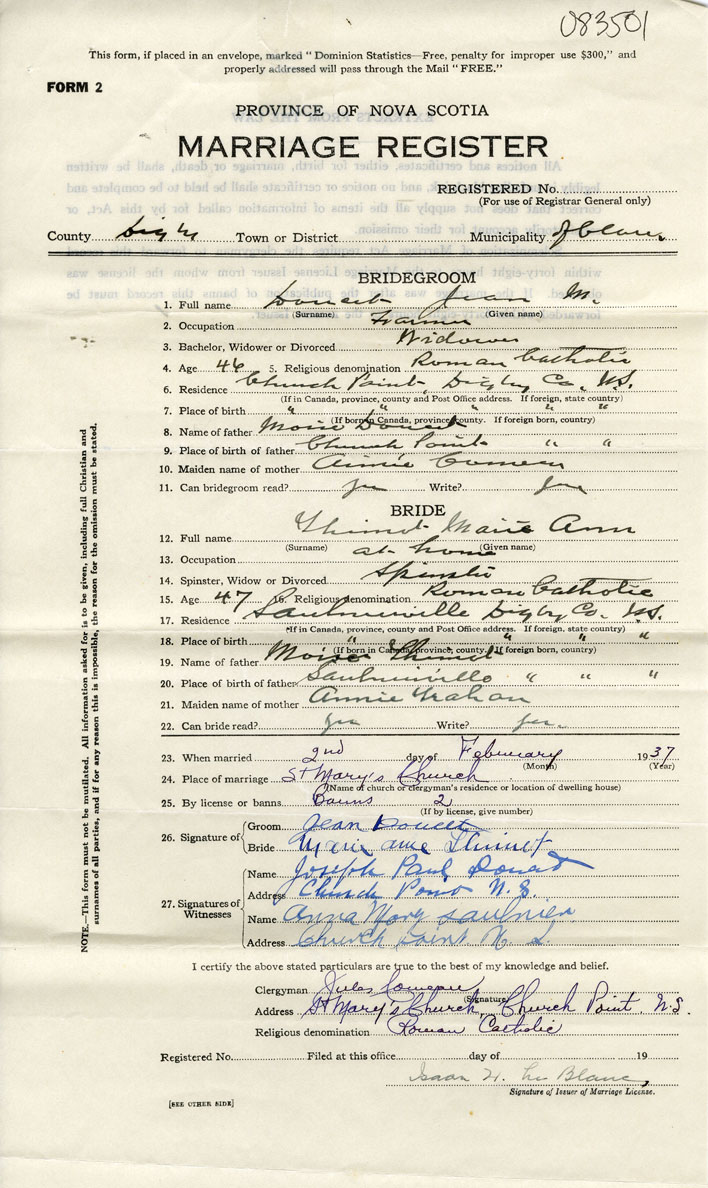 083501
This form, if placed in an envelope, marked "Dominion Statistics—Free, penalty for improper use $300," and
properly addressed will pass through the Mail "FREE."
FORM 2
PROVINCE OF NOVA SCOTIA
MARRIAGE REGISTER
REGISTERED No.
(For use of Registrar General only)
County Digby Town or District Municipality of Clare
BRIDEGROOM
1. Full name Doucet Jean M.
(Surname) (Given name)
2. Occupation Farmer
3. Bachelor, Widower or Divorced Widower
4. Age 46 5. Religious denomination Roman Catholic
6. Residence Church Point Digby Co. N.S.
(If in Canada, province, county and Post Office address. If foreign, state country)
7. Place of birth " " " " "
(If born in Canada, province, county. If foreign born, country)
8. Name of father Moise Doucet
9. Place of birth of father Church Point " "
10. Maiden name of mother Annie Comeau
11. Can bridegroom read? Yes Write? Yes
BRIDE
12. Full name Thimot Marie Ann
(Surname) (Given name)
13. Occupation at home
14. Spinster, Widow or Divorced Spinster
15. Age 47 16. Religious denomination Roman Catholic
17. Residence Saulnierville Digby Co. N.S.
(If in Canada, province, county and Post Office address. If foreign, state country)
18. Place of birth " " " "
(If born in Canada, province, county. If foreign born, country)
19. Name of father Moise Thimot
20. Place of birth of father Saulnierville " " "
21. Maiden name of mother Annie Trahan
22. Can bride read? Yes Write? Yes.
23. When married 2nd day of February 1937
(Month) (Year)
24. Place of marriage St Mary's Church
(Name of church or clergyman's residence or location of dwelling house)
25. By license or banns Banns 2
(If by license, give number)
26. Signature of
Groom Jean Doucet
Bride Marie anne Thimot
27. Signatures of Witnesses
Name Joseph Paul Doucet
Address Church Point N.S.
Name Anna Mary Saulnier
Address Church Point N.S.
I certify the above stated particulars are true to the best of my knowledge and belief.
Clergyman Jules Comeau
(Signature)
Address St Mary's Church, Church Point. N.S.
Religious denomination Roman Catholic
Registered No. Filed at this office day of 19
Isaan H. Le Blanc,
Signature of Issuer of Marriage License.
[SEE OTHER SIDE]
NOTE.—This form must not be mutilated. All information asked for is to be given, including full Christian and
surnames of all parties, and if for any reason this is impossible, the reason for the omission must be stated.